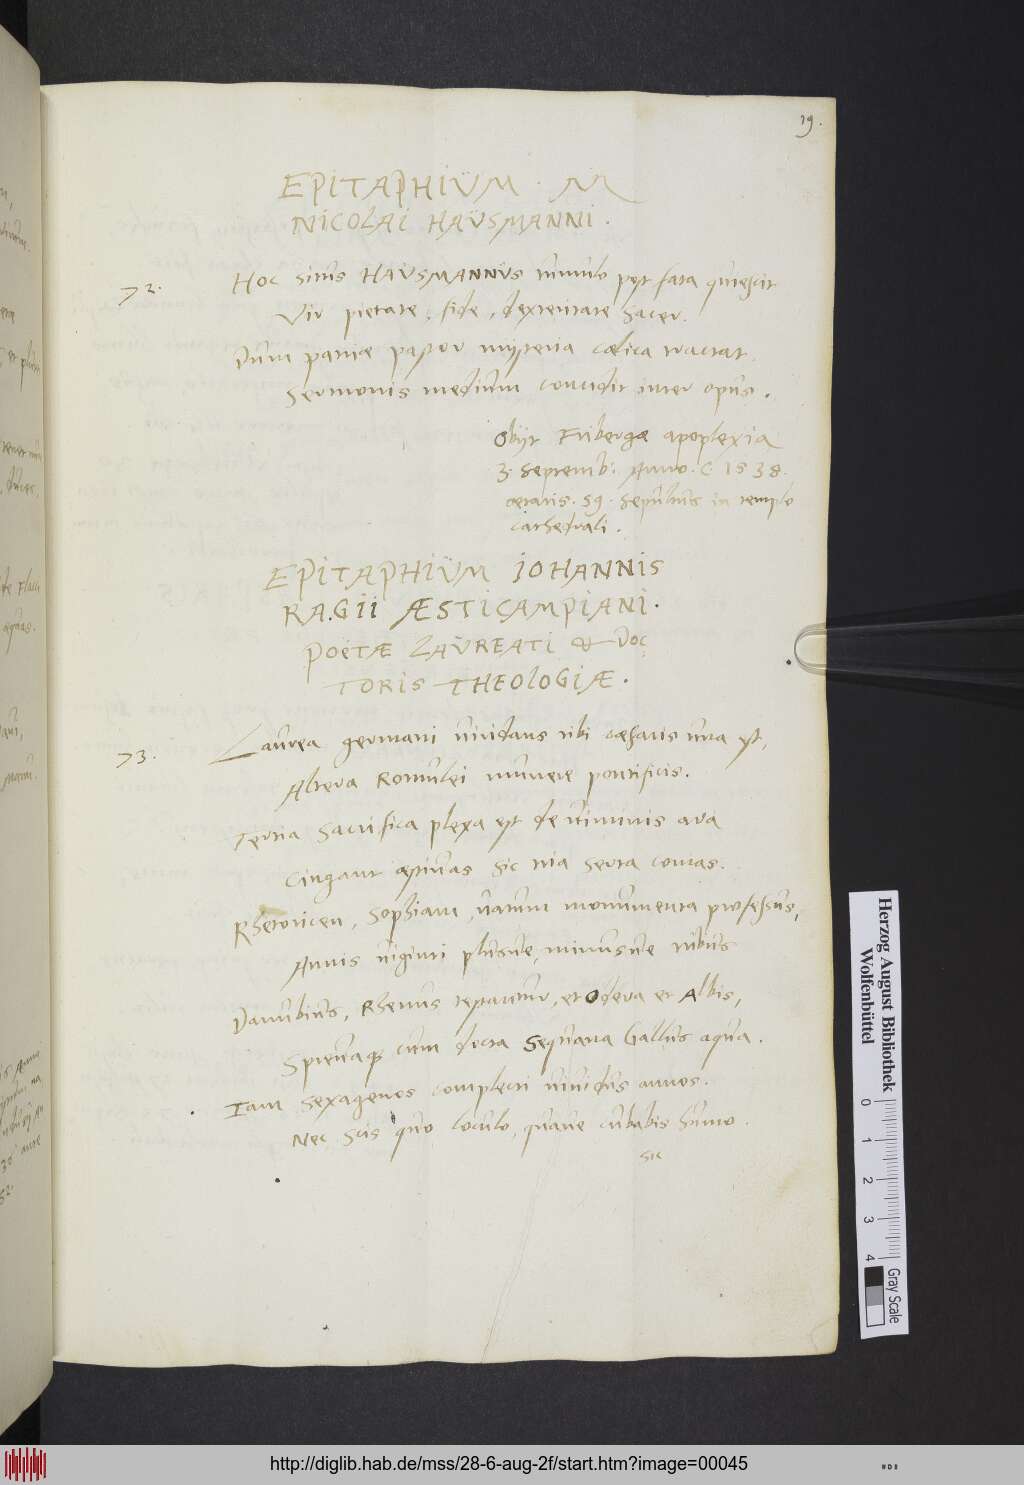 19.
EPITAPHIUM . M
NICOLAI HAUSMANNI .
72.
Hoc situs HAUSMANNUS tumulo post fata quiescit
Vir pietate, fide, dexteritate sacer.
Dum patriæ pastor mysteria cælica tractat
Sermonis medium concidit inter opus.
Obijt Fribergæ apoplexia
3. Septemb: Anno. C. 1538.
ætatis. 59. Sepultus in templo
cathedrali.
EPITAPHIUM IOHANNIS
RAGII ÆSTICAMPIANI.
POËTÆ LAUREATI & DOC
TORIS THEOLOGIÆ.
73.
Laurea germani viridans tibi cæsaris una est,
Altera Romulei munere pontificis.
Tertia sacrifica plexa est de viminis ara
Cingant æstivas sic tria serta comas.
Rhetoricen, Sophiam, vatum monumenta professus,
Annis viginti plusve, minusve tribus
Danubius, Rhenus testantur, et Odera et Albis,
Sprevaq3 cum docta Sequana Gallus aqua.
Iam sexagenos complecti vividus annos.
Nec scis quo loculo, quave cubabis humo.
sic
Herzog August Bibliothek
Wolfenbüttel
0 1 2 3 4
Gray Scale
http://diglib.hab.de/mss/28-6-aug-2f/start.htm?image=00045